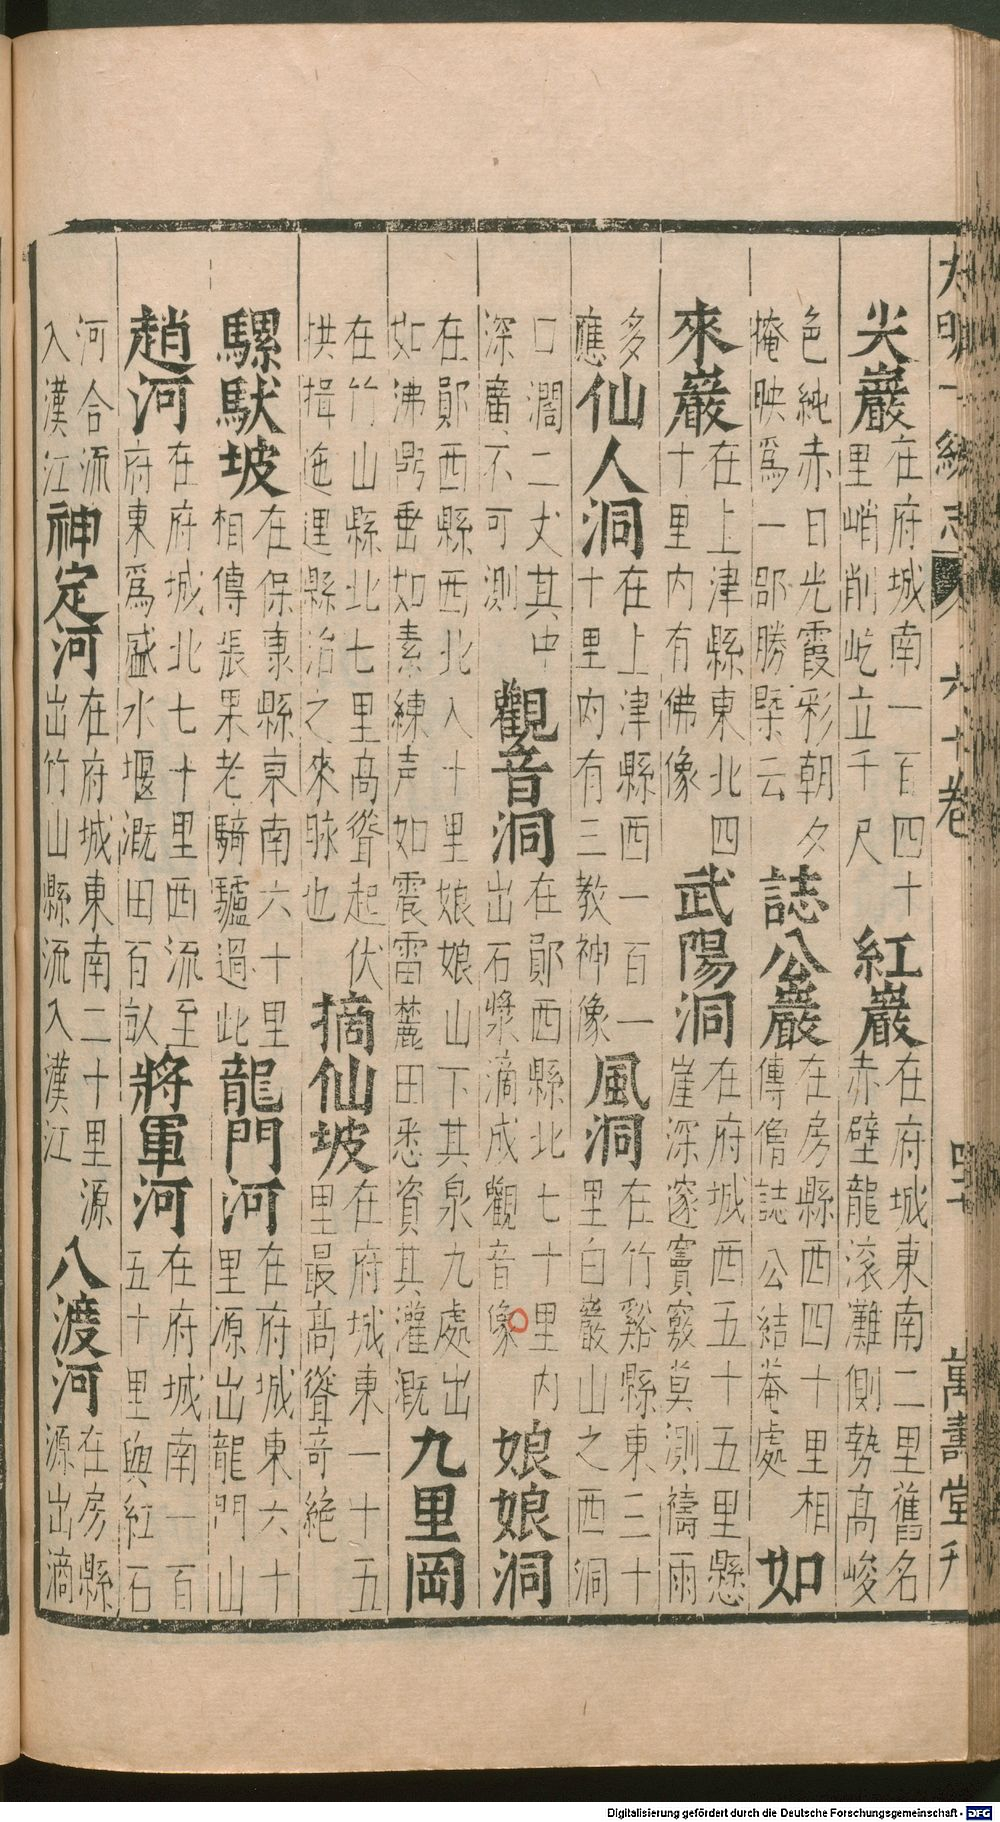 大明一統志 六十卷 萬壽堂刊
尖巖在府城南一百四十里峭削屹立千尺紅巖在府城東南二里舊名赤壁龍滚灘側勢高峻
色純赤日光霞彩朝夕掩映爲一郡勝槩云誌公巖在房縣西四十里相傳僧誌公結菴處如
來巖在上津縣東北四十里内有佛像武陽洞在府城西五十五里懸崖深邃竇竅莫測禱雨
多應仙人洞在上津縣西一百一十里内有三教神像風洞在竹谿縣東三十里白巖山之西洞
口濶二丈其中深廣不可測觀音洞在鄖西縣北七十里内出石漿滴成觀音像娘娘洞
在鄖西縣西北八十里娘娘山下其泉九處出如沸鼎垂如素練声如雹雷麓田悉資其灌溉九里岡
在竹山縣北七里高聳起伏拱揖迤逕縣治之來脉也摘仙坡在府城東一十五里最高聳奇絶
騾馱坡在保康縣東南六十里相傳張果老騎驢過此龍門河在府城東六十里源出龍門山
趙河在府城北七十里西流至府東爲盛水堰溉田百畝將軍河在府城南一百五十里與紅石
河合流入漢江神定河在府城東南二十里源出竹山縣流入漢江八渡河在房縣源出滴
Digitalisierung gefördert durch die Deutsche Forschungsgemeinschaft - DFG